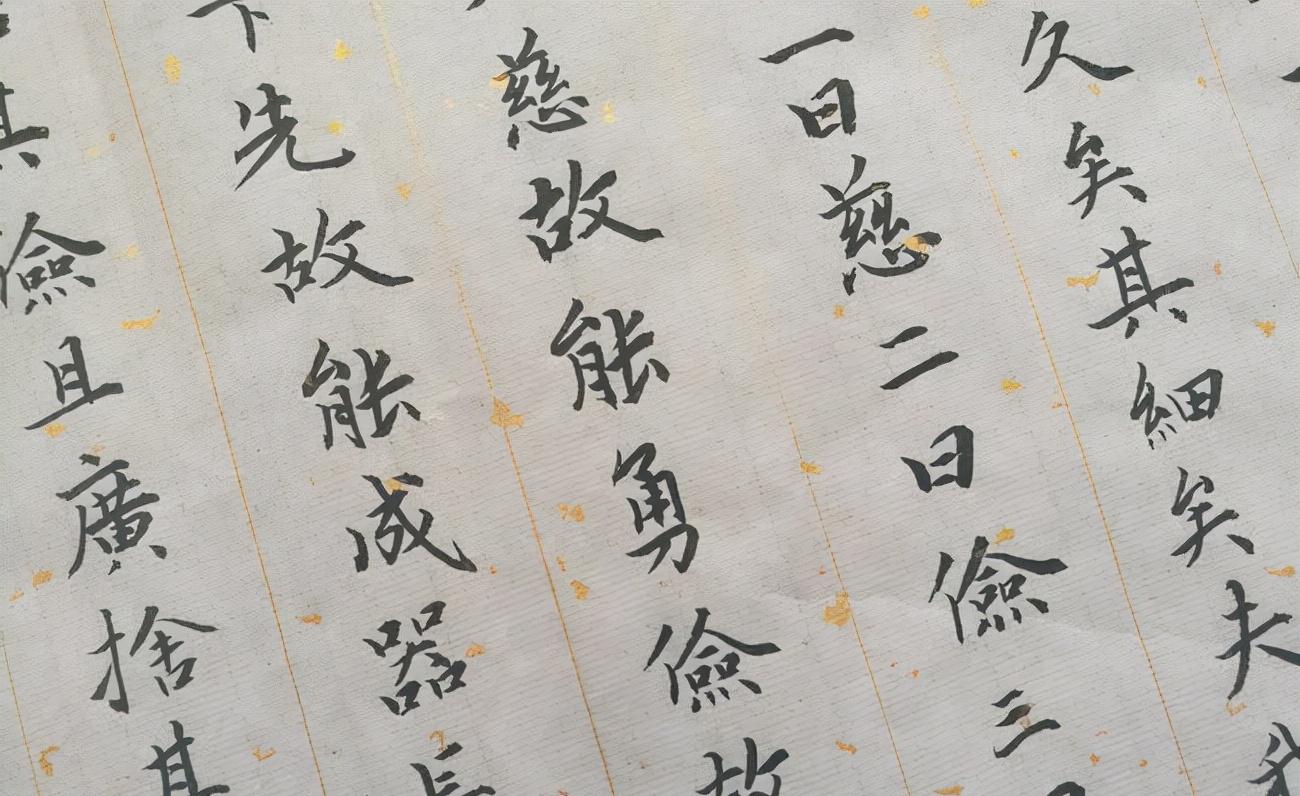 久矣其細矣夫
一曰慈二曰儉三
慈故能勇儉故
下先故能成器長
其儉且廣捨其